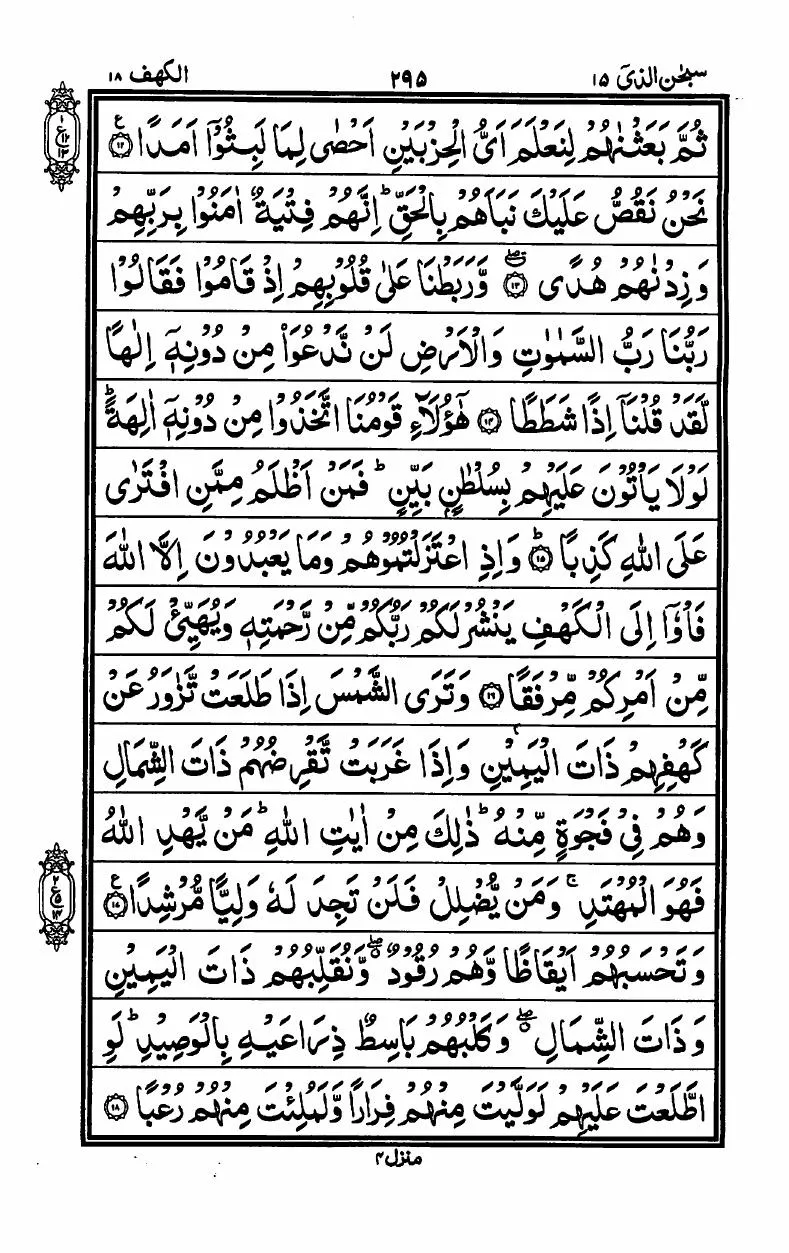 سبحٰن الذیٓ ۱۵
۲۹۵
الکھف ۱۸
ثُمَّ بَعَثْنٰهُمْ لِنَعْلَمَ اَیُّ الْحِزْبَیْنِ اَحْصٰی لِمَا لَبِثُوْۤا اَمَدًا ﴿۱۲﴾ ع
نَحْنُ نَقُصُّ عَلَیْكَ نَبَاَهُمْ بِالْحَقِّ ؕ اِنَّهُمْ فِتْیَةٌ اٰمَنُوْا بِرَبِّهِمْ
وَزِدْنٰهُمْ هُدًی ﴿۱۳﴾ وَّرَبَطْنَا عَلٰی قُلُوْبِهِمْ اِذْ قَامُوْا فَقَالُوْا
رَبُّنَا رَبُّ السَّمٰوٰتِ وَالْاَرْضِ لَنْ نَّدْعُوَا۠ مِنْ دُوْنِهٖۤ اِلٰهًا
لَّقَدْ قُلْنَاۤ اِذًا شَطَطًا ﴿۱۴﴾ هٰۤؤُلَآءِ قَوْمُنَا اتَّخَذُوْا مِنْ دُوْنِهٖۤ اٰلِهَةً ؕ
لَوْلَا یَاْتُوْنَ عَلَیْهِمْ بِسُلْطٰنٍۭ بَیِّنٍ ؕ فَمَنْ اَظْلَمُ مِمَّنِ افْتَرٰی
عَلَی اللّٰهِ كَذِبًا ﴿۱۵﴾ ؕ وَاِذِ اعْتَزَلْتُمُوْهُمْ وَمَا یَعْبُدُوْنَ اِلَّا اللّٰهَ
فَاْوٗۤا اِلَی الْكَهْفِ یَنْشُرْ لَكُمْ رَبُّكُمْ مِّنْ رَّحْمَتِهٖ وَیُهَیِّئْ لَكُمْ
مِّنْ اَمْرِكُمْ مِّرْفَقًا ﴿۱۶﴾ وَتَرَی الشَّمْسَ اِذَا طَلَعَتْ تَّزٰوَرُ عَنْ
كَهْفِهِمْ ذَاتَ الْیَمِیْنِ وَاِذَا غَرَبَتْ تَّقْرِضُهُمْ ذَاتَ الشِّمَالِ
وَهُمْ فِیْ فَجْوَةٍ مِّنْهُ ؕ ذٰلِكَ مِنْ اٰیٰتِ اللّٰهِ ؕ مَنْ یَّهْدِ اللّٰهُ
فَهُوَ الْمُهْتَدِ ۚ وَمَنْ یُّضْلِلْ فَلَنْ تَجِدَ لَهٗ وَلِیًّا مُّرْشِدًا ﴿۱۷﴾ ع
وَتَحْسَبُهُمْ اَیْقَاظًا وَّهُمْ رُقُوْدٌ ۖۗ وَّنُقَلِّبُهُمْ ذَاتَ الْیَمِیْنِ
وَذَاتَ الشِّمَالِ ۖۗ وَكَلْبُهُمْ بَاسِطٌ ذِرَاعَیْهِ بِالْوَصِیْدِ ؕ لَوِ
اطَّلَعْتَ عَلَیْهِمْ لَوَلَّیْتَ مِنْهُمْ فِرَارًا وَّلَمُلِئْتَ مِنْهُمْ رُعْبًا ﴿۱۸﴾
منزل ۴